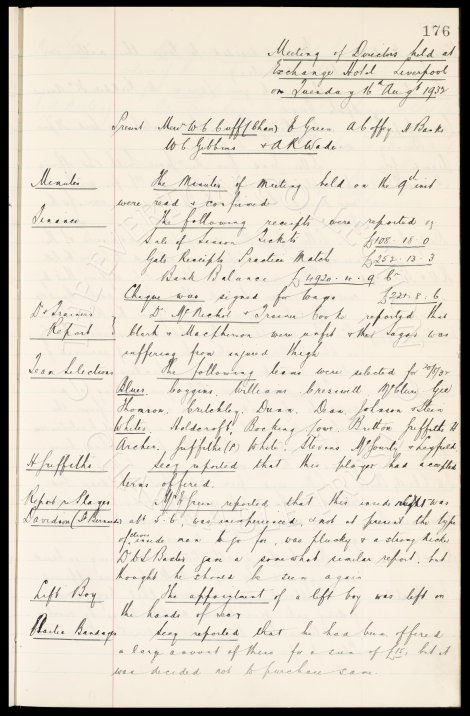 176
Meeting of Directors held at
Exchange Hotel Liverpool
on Tuesday 16th Augt 1932
Present Messrs W C Cuff (Chair) E Green A Coffey A Banks
W C Gibbins & A R Wade.
Minutes The Minutes of meeting held on the 9th inst
were read & confirmed
Finance The following receipts were reported
Sale of Season Tickets £108 - 18 - 0
Gate Receipts Practice Match £252 - 13 - 3
Bank Balance £4920 - 4 - 9 Cr
Cheque was signed for Wages £221 - 8 - 6
Dr & Trainers Report Dr. & Trainer Cook reported that
Clark & Macpherson were unfit & that Sagar was
suffering from injured thigh
Team Selections The following teams were selected for 20/8/32
Blues. Coggins. Williams Cresswell McClure Gee
Thomson. Critchley. Dunn. Dean. Johnson & Stein
Whites. Holdcroft. Bocking Lowe. Britton Griffiths H
Archer. Griffiths (P) White. Stevens McGourty &
H Griffiths Secy reported that this player had accepted
terms offered.
Report re Players Mr Green reported that this inside right was
Davidson abt 5-6. was inexperienced, & not at present the type
of inside man to go for, was plucky & a strong kicker
Dr Baxter gave a somewhat similar report, but
thought he should be seen again
Lift Boy The appointment of a lift boy was left in
the hands of Secy
Bandages Secy reported that he had been offered
a large amount of these for a sum of £15, but it
was decided not to purchase same.